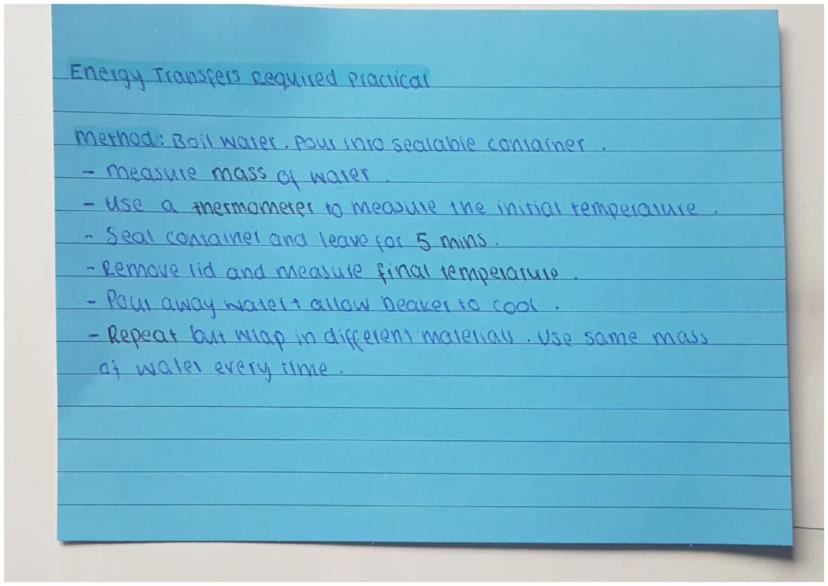 Energy Transfers Required Practical
Method: Boil water. Pour into sealable container.
- Measure mass of water.
- Use a thermometer to measure the initial temperature.
- Seal container and leave for 5 mins.
- Remove lid and measure final temperature.
- Pour away water + allow beaker to cool.
- Repeat but wrap in different materials. Use same mass
of water every time.